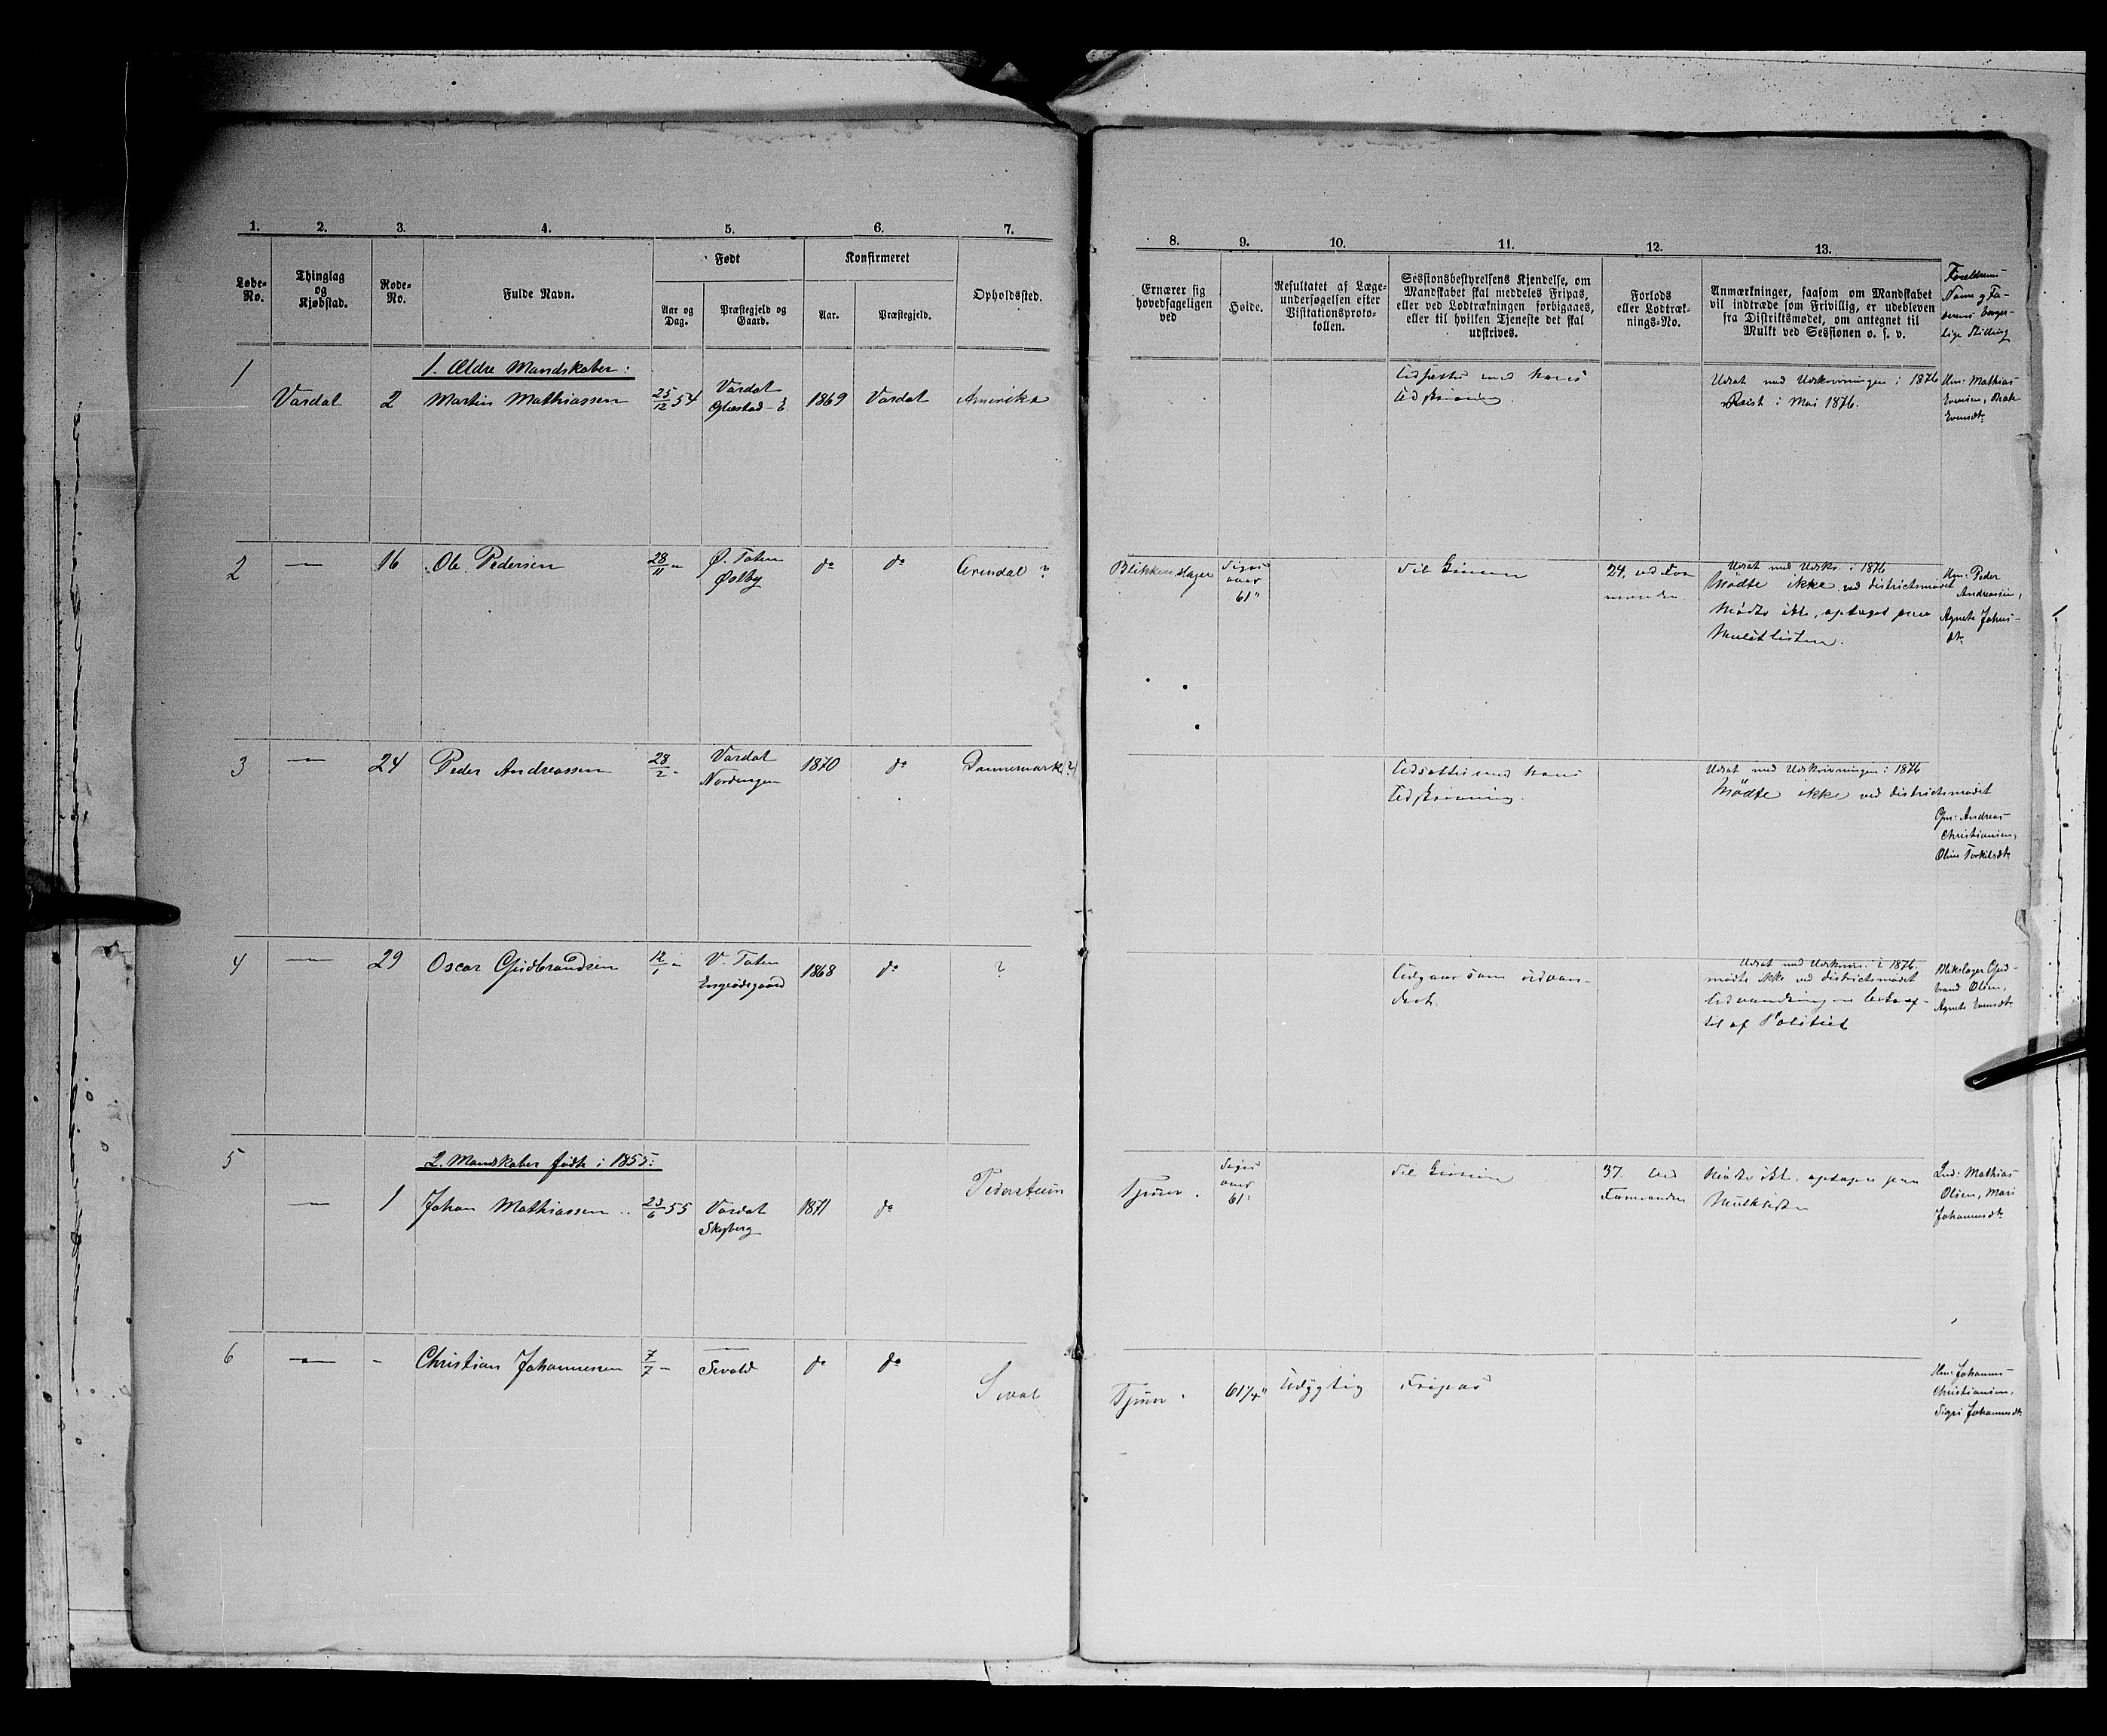 1. 2. 3. 4. 5. 6. 7.
Løbe-No.
Thinglag og Kjøbstad.
Rode-No.
Fulde Navn.
Født
Aar og Dag.
Præstegjeld og Gaard.
Konfirmeret
Aar.
Præstegjeld.
Opholdssted.
1
1. Ældre Mandskaber:
Vardal 2 Martin Mathiassen 25/12 54 Vardal 1869 Vardal Amerika
2 — 16 Ole Pedersen 28/11 " Ø. Toten do do Arendal ?
Østby
3 — 24 Peder Andreassen 28/2 - Vardal 1870 do Dannemark (?)
Nordengen
4 — 29 Oscar Gudbrandsen 12/1 " V. Toten 1868 do ?
5
2. Mandskaber fødte i 1855:
— 1 Johan Mathiassen 23/6 55 Vardal 1871 do
Skyberg
6 — - Christian Johannessen 7/7 - Sivald do do
8. 9. 10. 11. 12. 13.
Ernærer sig hovedsageligen ved
Høide.
Resultatet af Læge-
undersøgelsen efter
Visitationsproto-
kollen.
Sessionsbestyrelsens Kjendelse, om
Mandskabet skal meddeles Fripas,
eller ved Lodtrækningen forbigaaes,
eller til hvilken Tjeneste det skal
udskrives.
Forlods
eller Lodtræk-
nings-No.
Anmærkninger, saasom om Mandskabet
vil indtræde som Frivillig, er udebleven
fra Distriktsmødet, om antegnet til
Mulkt ved Sessionen o. s. v.
Forældrenes
Navne og Fa-
derens borger-
lige Stilling
Udsættes med hans
Udskrivning.
Udsat med Udskrivningen i 1876
Reist i Mai 1876.
Hm: Mathias
Evensen, Beate
Evensdt.
Blikkenslager
Siges
over
61"
24. ved For
manden
Udsat med Udskr. i 1876
Mødte ikke ved districtsmødet
Mødte ikke, optaget paa
Mulktlisten.
Hm: Peder
Andreassen,
Agnete Johns-
dt.
Udsættes med hans
Udskrivning.
Udsat med Udskrivningen i 1876
Mødte ikke ved districtsmødet
Gm: Andreas
Christiansen,
Oline Torkildsdt.
Udgaar som udvan-
dret.
Udsat med Udskriv. i 1876.
mødte ikke ved districtsmødet
Udvandringen bekræf-
tet af Politiet
Blikslager Gud-
brand Olsen,
Agnete Evensdt.
Tjener.
Siges
over
61"
37. ved
Formanden
Mødte ikke, optages paa
Mulktlisten
Ind: Mathias
Olsen, Mari
Johannesdt.
Tjener 61¼" Udygtig Fripas
Hm: Johannes
Christiansen,
Sigri Johannesdt.